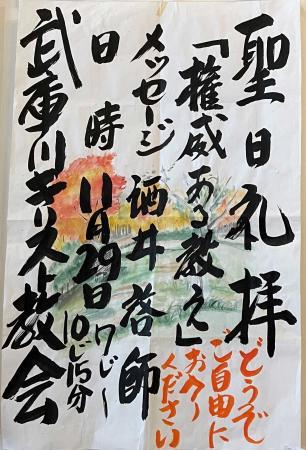 聖日礼拝
「権威ある教え」
メッセージ 酒井啓師
日 時 11月29日 7じ〜
10じ15分
武庫川キリスト教会
どうぞ
ご自由に
お入り
ください